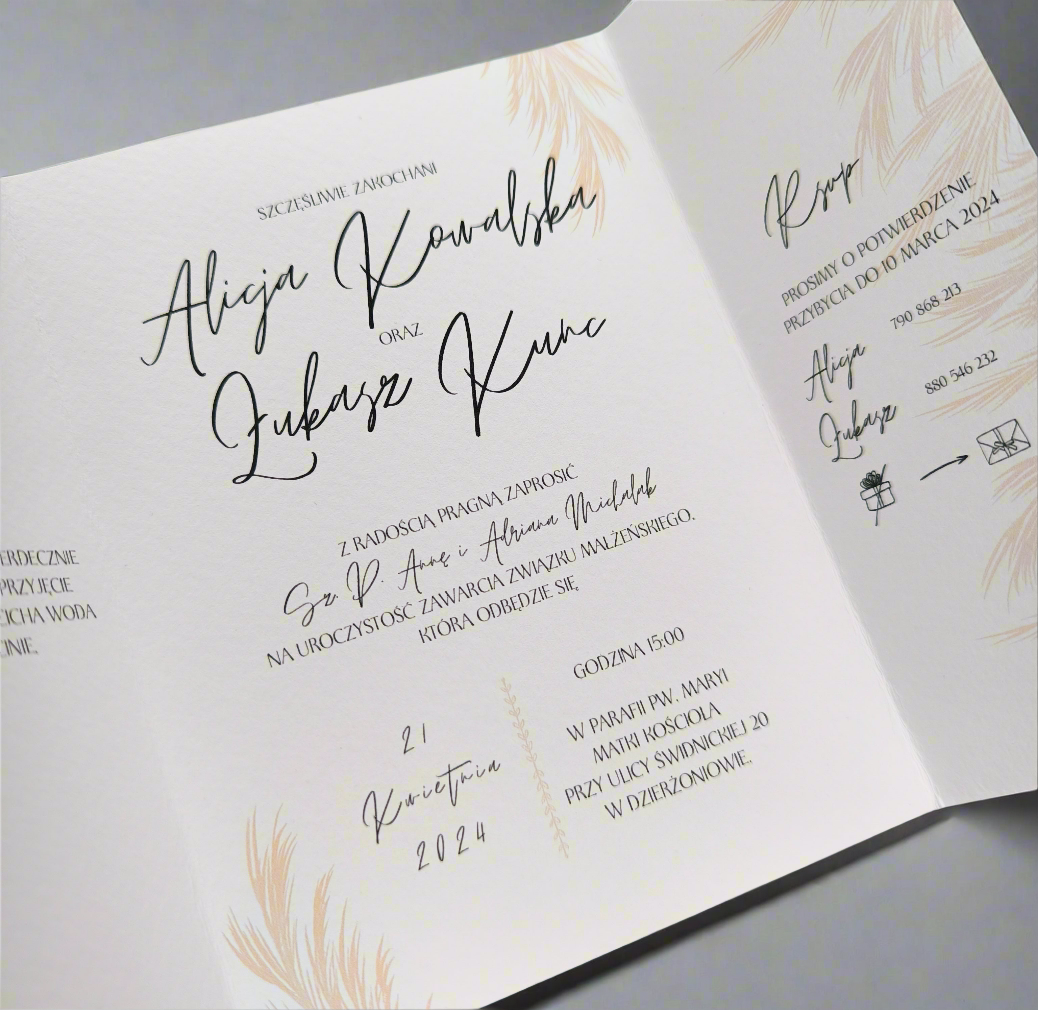 ERDECZNIE
PRZYJĘCIE
CICHA WODA
SZCZĘŚLIWIE ZAKOCHANI
Alicja Kowalska
ORAZ
Łukasz Kunc
Z RADOŚCIĄ PRAGNĄ ZAPROSIĆ
Sz. P. Annę i Adriana Michalak
NA UROCZYSTOŚĆ ZAWARCIA ZWIĄZKU MAŁŻEŃSKIEGO,
KTÓRA ODBĘDZIE SIĘ
21
Kwietnia
2024
GODZINA 15:00
W PARAFII PW. MARYI
MATKI KOŚCIOŁA
PRZY ULICY ŚWIDNICKIEJ 20
W DZIERŻONIOWIE.
Rsvp
PROSIMY O POTWIERDZENIE
PRZYBYCIA DO 10 MARCA 2024
Alicja 790 868 213
Łukasz 880 546 232